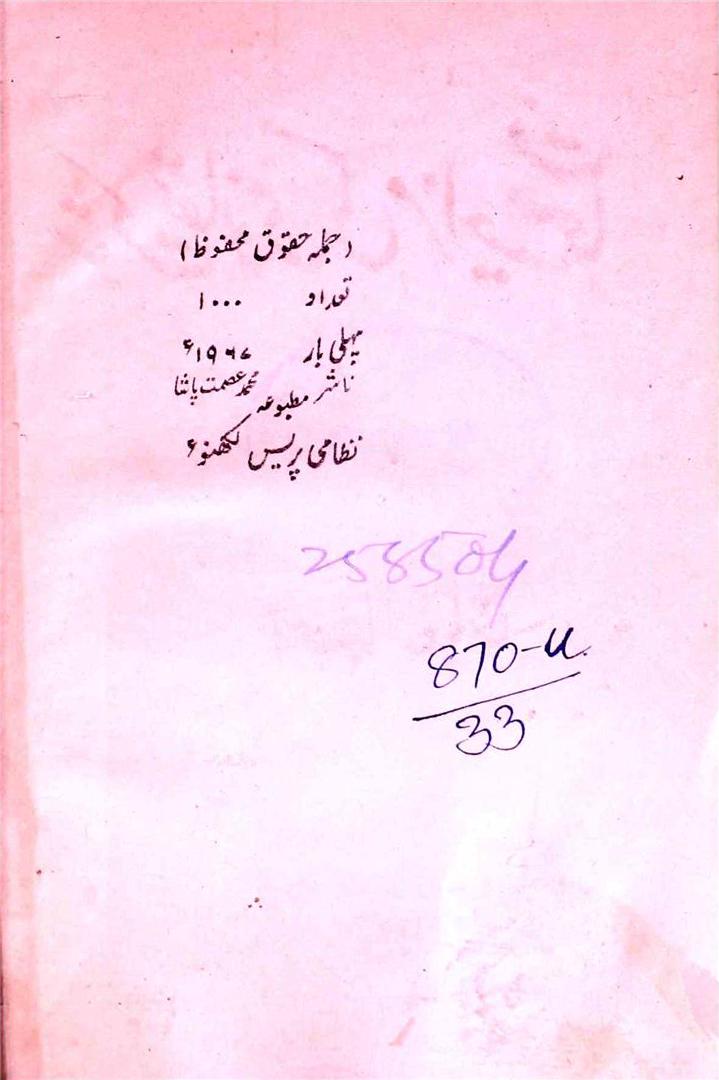 (جملہ حقوق محفوظ)
تعداد ۱۰۰۰
پہلی بار ۱۹۶۷ء
ناشر محمد عصمت پاشا
مطبوعہ
نظامی پریس لکھنؤ
258504
870-U
33